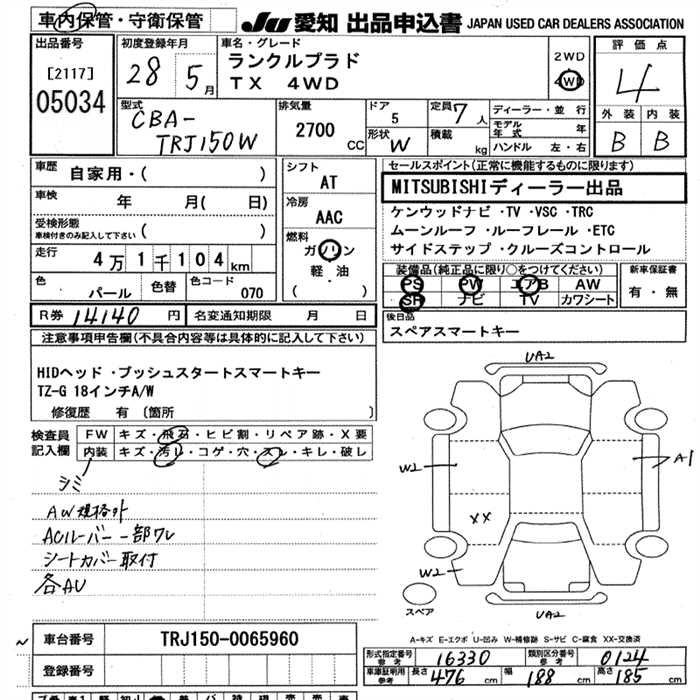 車内保管・守衛保管
JU 愛知 出品申込書 JAPAN USED CAR DEALERS ASSOCIATION
出品番号
[2117]
05034
初度登録年月
28 5月
車名・グレード
ランクルプラド
TX 4WD
2WD
4WD
評価点
4
外装 内装
B B
型式
CBA-
TRJ150W
排気量
2700 CC
ドア
5
形状
W
定員 7人
積載 kg
ディーラー・並行
モデル年式 年
ハンドル 左・右
車歴 自家用・( )
車検 年 月( 日)
受検形態
車検付きのみ記入して下さい ( )
走行 4万1千104km
色 パール 色替 色コード 070
シフト
AT
冷房
AAC
燃料
ガソリン
軽・油
( )
セールスポイント(正常に機能するものに限ります)
MITSUBISHIディーラー出品
ケンウッドナビ・TV・VSC・TRC
ムーンルーフ・ルーフレール・ETC
サイドステップ・クルーズコントロール
装備品(純正品に限り○をつけてください)
PS PW エアB AW
SR ナビ TV カワシート
新車保証書
有・無
R券 14140円 名変通知期限 月 日
後日品
スペアスマートキー
注意事項申告欄(不具合内容等は具体的に記入して下さい)
HIDヘッド・プッシュスタートスマートキー
TZ-G 18インチA/W
修復歴 有〔箇所 〕
検査員記入欄
FW キズ・飛石・ヒビ割・リペア跡・X要
内装 キズ・汚レ・コゲ・穴・スレ・キレ・破レ
シミ
AW規格外
ACルーバー一部ワレ
シートカバー取付
各AU
UA2
W2
A1
XX
W2
UA2
スペア
A-キズ E-エクボ U-凹み W-補修跡 S-サビ C-腐食 XX-交換済
車台番号 TRJ150-0065960
登録番号
形式指定番号 参考 16330 類別区分番号 参考 0124
車庫証明用 参考 長さ 476cm 幅 188cm 高さ 185cm